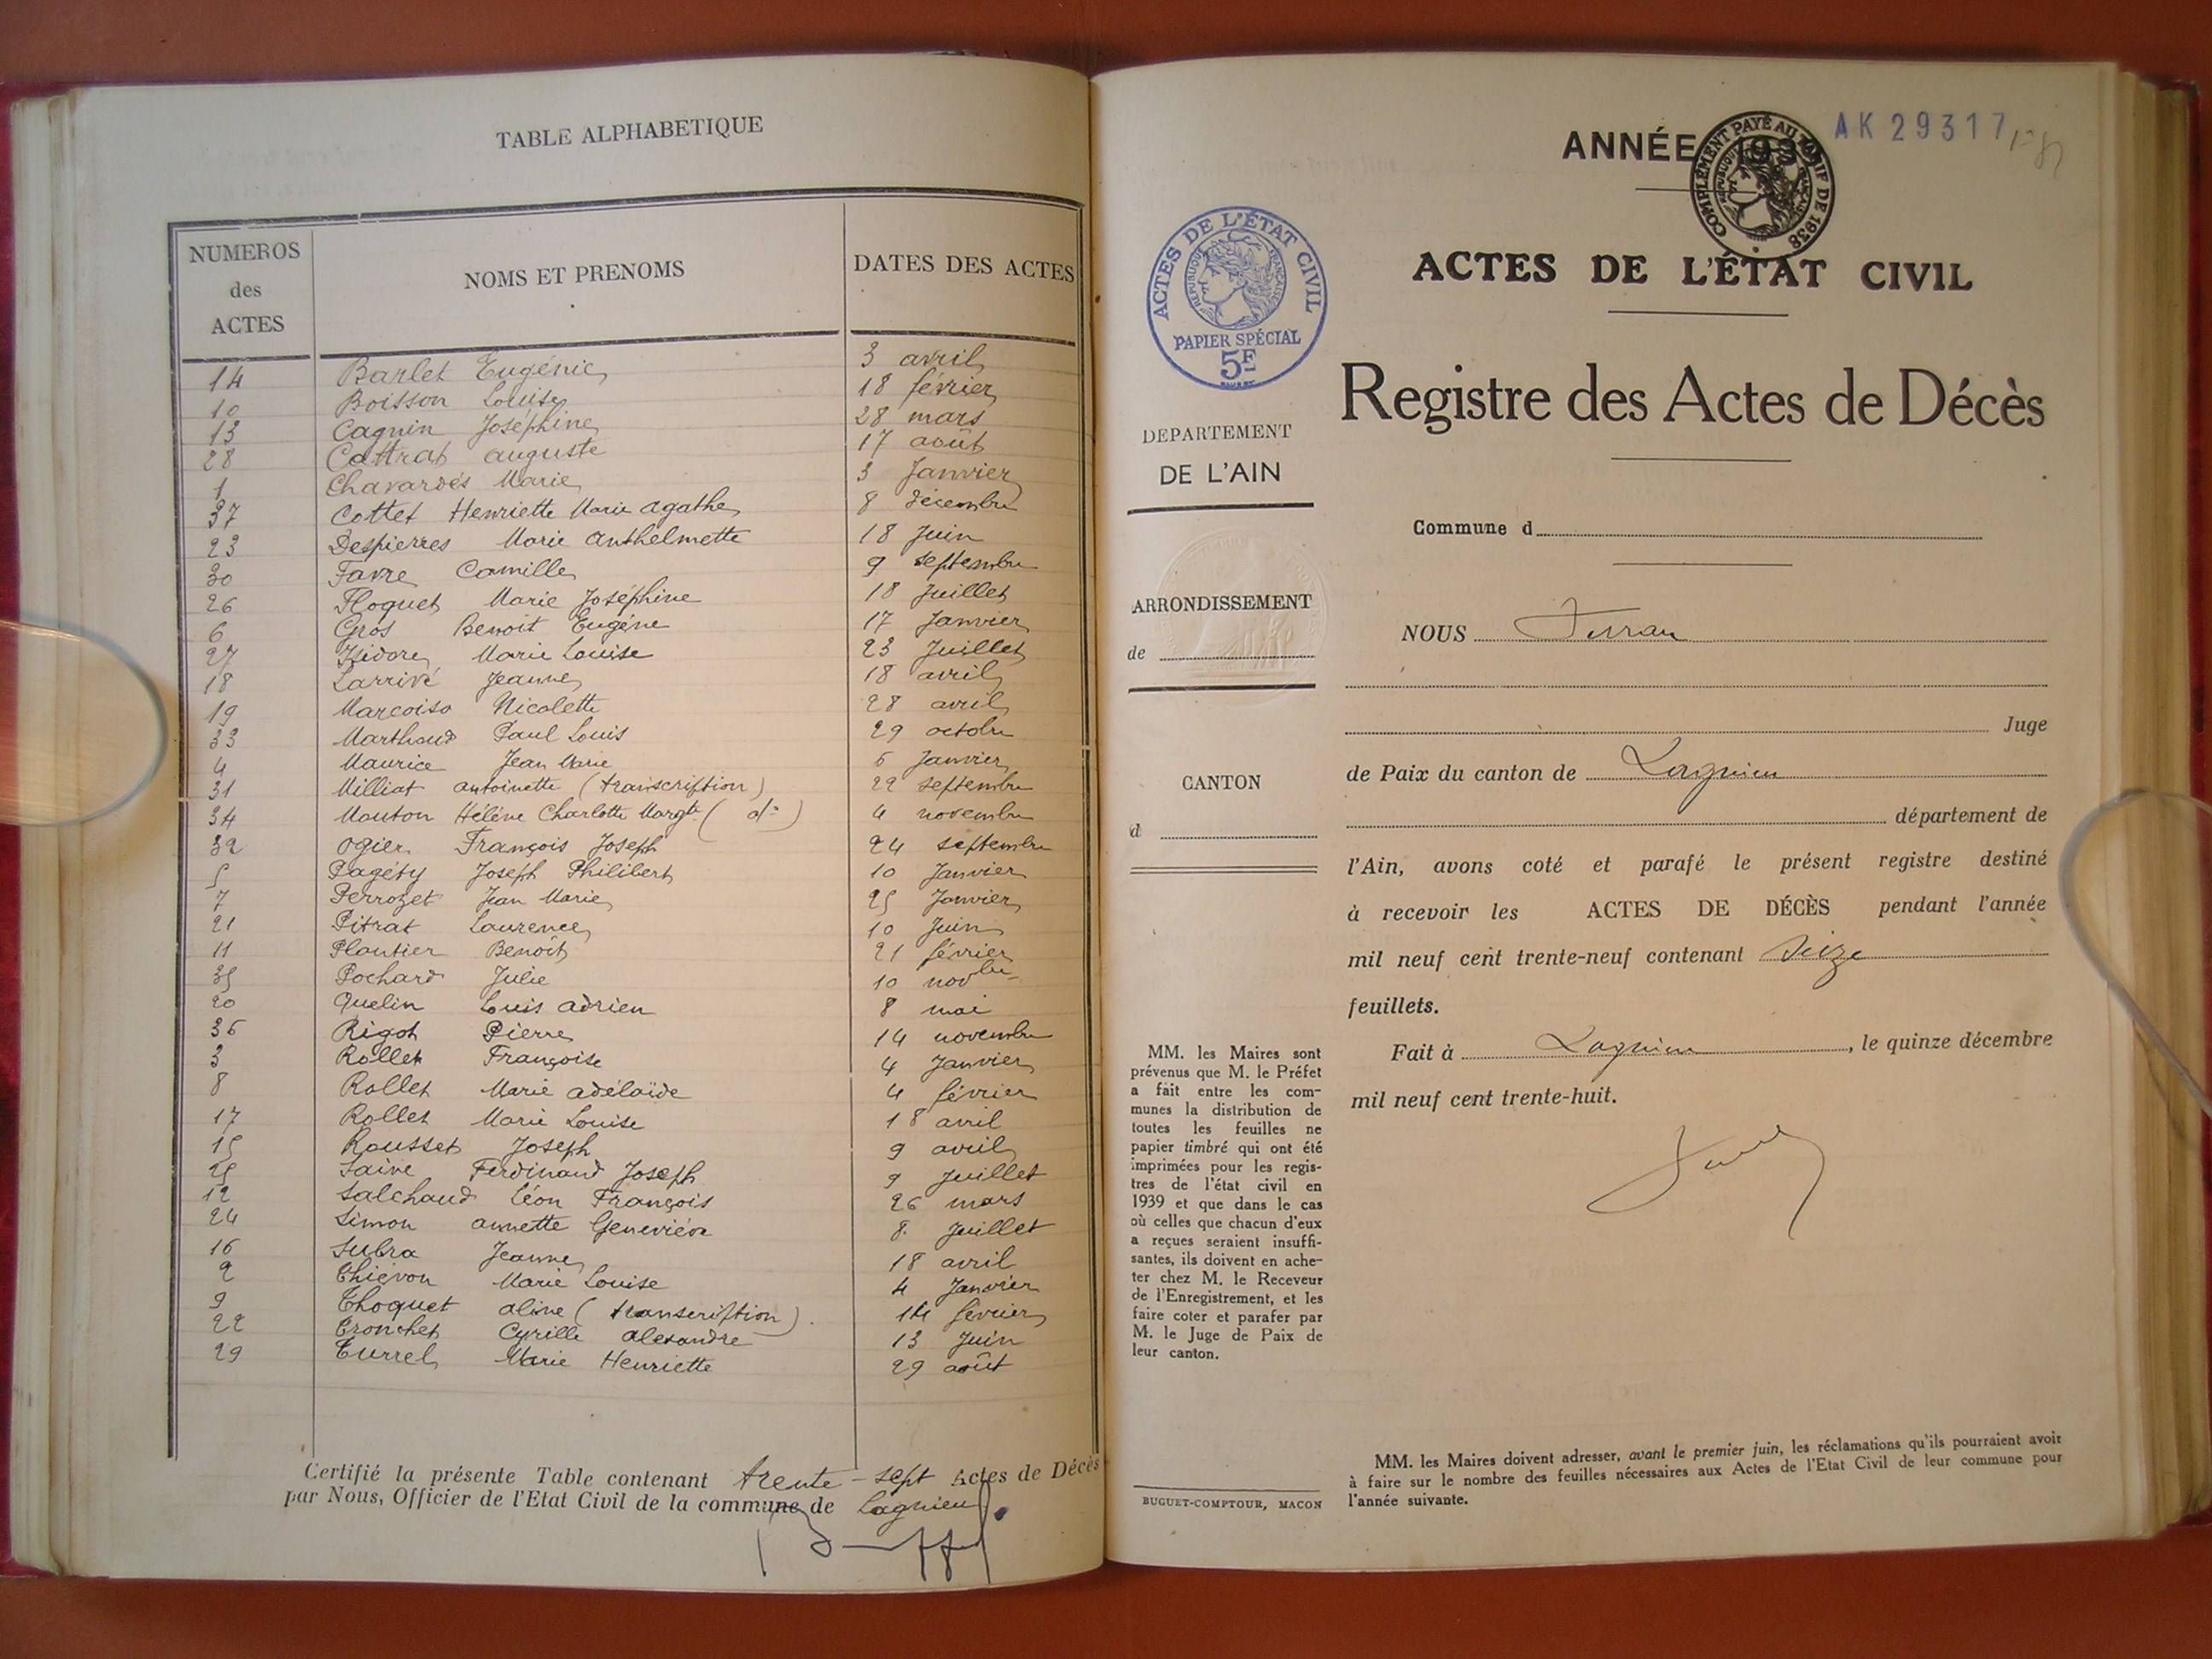 TABLE ALPHABETIQUE
NUMEROS des ACTES
NOMS ET PRENOMS
DATES DES ACTES
14 Barlet Eugénie 3 avril
10 Boisson Louise 18 février
13 Cagnin Joséphine 28 mars
28 Cattrat auguste 17 août
1 Chavardés Marie 3 Janvier
37 Cottet Henriette Marie agathe 8 décembre
23 Despierres Marie Anthelmette 18 Juin
30 Favre Camille 9 septembre
26 Floquet Marie Joséphine 18 Juillet
6 Gros Benoit Eugène 17 Janvier
27 Isidore Marie Louise 23 Juillet
18 Larrivé Jeanne 18 avril
19 Marcoiso Nicolette 28 avril
33 Marthoud Paul Louis 29 octobre
4 Maurice Jean Marie 6 Janvier
31 Milliat antoinette (transcription) 22 septembre
34 Mouton Hélène Charlotte Margte ( do ) 4 novembre
32 Ogier François Joseph 24 septembre
5 Pagéty Joseph Philibert 10 Janvier
7 Perrozet Jean Marie 25 Janvier
21 Pitrat Laurence 10 Juin
11 Plantier Benoît 21 février
35 Pochard Julie 10 novbre
20 Quelin Louis adrien 8 mai
36 Rigot Pierre 14 novembre
3 Rollet Françoise 4 Janvier
8 Rollet Marie adélaïde 4 février
17 Rollet Marie Louise 18 avril
15 Rousset Joseph 9 avril
25 Saive Ferdinand Joseph 9 Juillet
12 Salchaud Léon François 26 mars
24 Simon annette Geneviève 8 Juillet
16 Subra Jeanne 18 avril
2 Thiévon Marie Louise 4 Janvier
9 Thoquet aline (transcription). 14 février
22 Tronchet Cyrille alexandre 13 Juin
29 Turrel Marie Henriette 29 août
Certifié la présente Table contenant trente-sept Actes de Décès
par Nous, Officier de l'Etat Civil de la commune de Lagnieu
ANNÉE 193
AK 29317
COMPLÉMENT PAYÉ AU TARIF DE 1938
RÉPUBLIQUE FRANÇAISE
ACTES DE L'ÉTAT CIVIL
RÉPUBLIQUE FRANÇAISE
PAPIER SPÉCIAL
5F
ACTES DE L'ÉTAT CIVIL
Registre des Actes de Décès
DEPARTEMENT
DE L'AIN
ARRONDISSEMENT
de
CANTON
d
MM. les Maires sont
prévenus que M. le Préfet
a fait entre les com-
munes la distribution de
toutes les feuilles ne
papier timbré qui ont été
imprimées pour les regis-
tres de l'état civil en
1939 et que dans le cas
où celles que chacun d'eux
a reçues seraient insuffi-
santes, ils doivent en ache-
ter chez M. le Receveur
de l'Enregistrement, et les
faire coter et parafer par
M. le Juge de Paix de
leur canton.
BUGUET-COMPTOUR, MACON
Commune d
NOUS Ferran
Juge
de Paix du canton de Lagnieu
département de
l'Ain, avons coté et parafé le présent registre destiné
à recevoir les ACTES DE DÉCÈS pendant l'année
mil neuf cent trente-neuf contenant seize
feuillets.
Fait à Lagnieu, le quinze décembre
mil neuf cent trente-huit.
MM. les Maires doivent adresser, avant le premier juin, les réclamations qu'ils pourraient avoir
à faire sur le nombre des feuilles nécessaires aux Actes de l'Etat Civil de leur commune pour
l'année suivante.